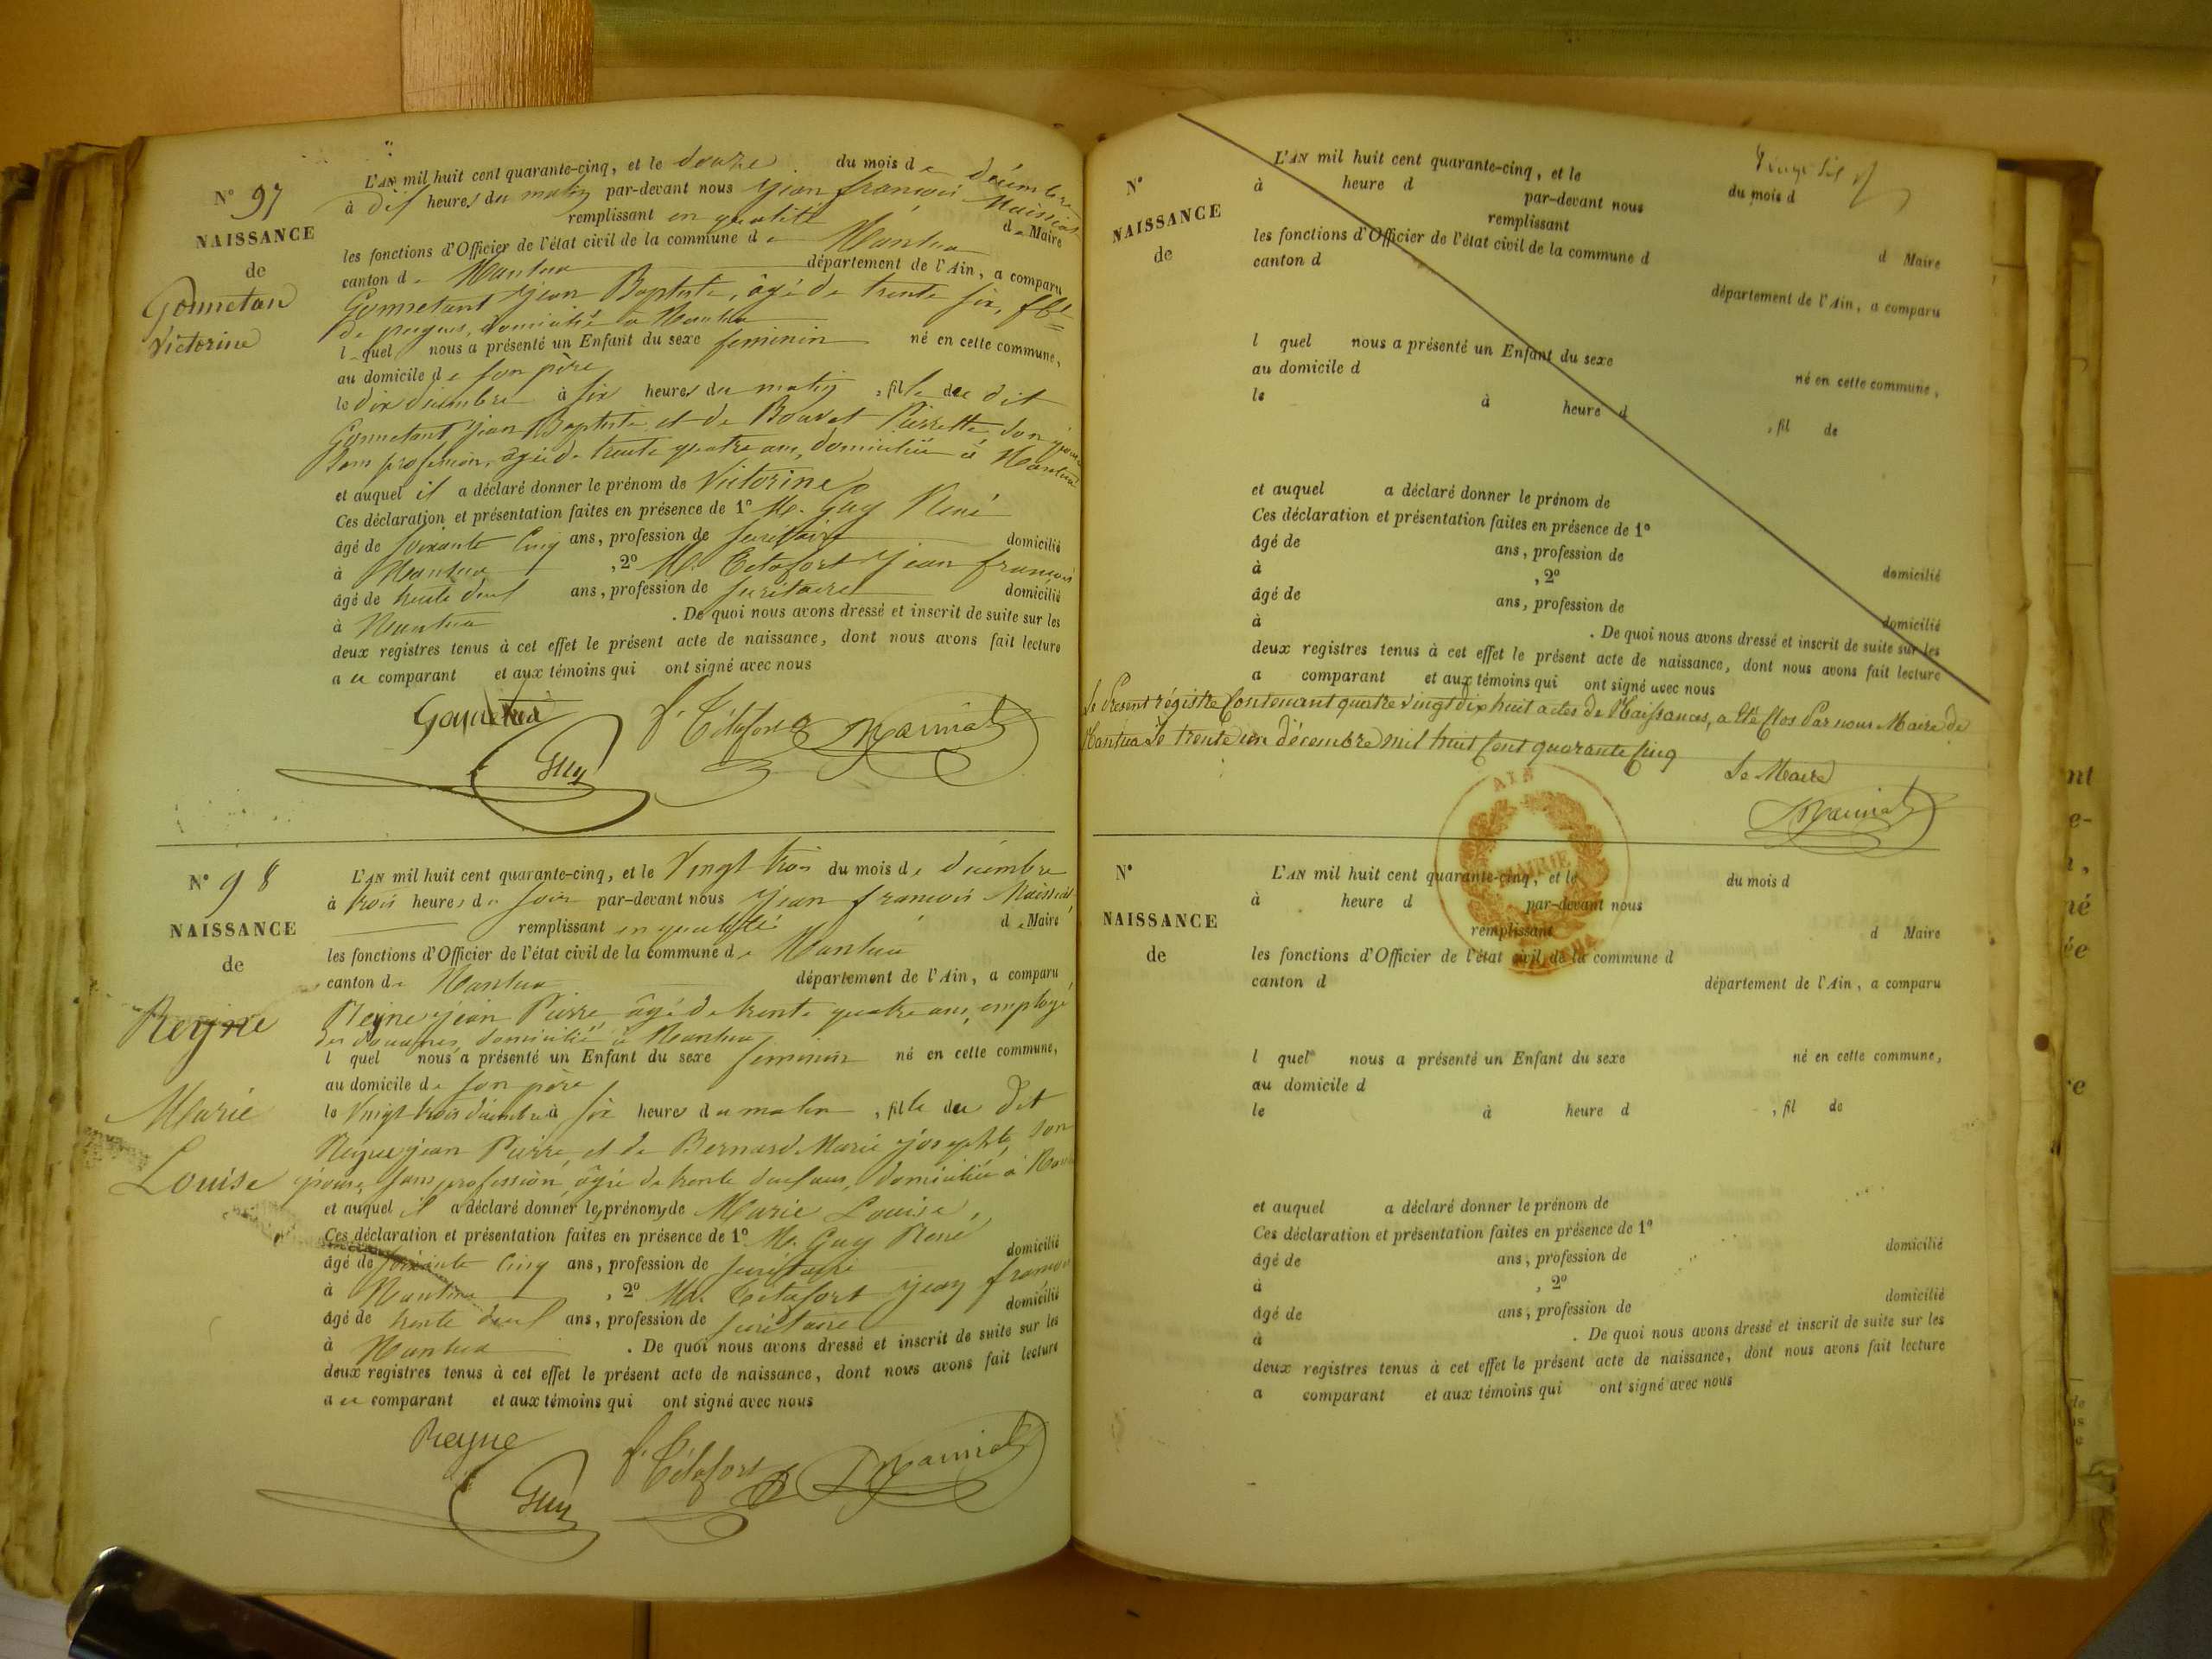 N° 97
NAISSANCE
de
Gonnetan
Victorine
L'AN mil huit cent quarante-cinq, et le douze du mois de décembre
à dix heures du matin par-devant nous Jean françois Maissiat
remplissant en qualité de Maire
les fonctions d'Officier de l'état civil de la commune de Nantua
canton de Nantua département de l'Ain, a comparu
Gonnetant Jean Baptiste, âgé de trente six, fbt
de peignes, domicilié à Nantua
lequel nous a présenté un Enfant du sexe feminin né en cette commune,
au domicile de son père
le dix décembre à six heures du matin, fille du dit
Gonnetant Jean Baptiste et de Bouvet Pierrette, son épouse
sans profession, âgée de trente quatre ans, domiciliée à Nantua
et auquel il a déclaré donner le prénom de Victorine
Ces déclaration et présentation faites en présence de 1° M. Guy René
âgé de soixante cinq ans, profession de secrétaire domicilié
à Nantua, 2° M. Tétafort Jean françois
âgé de trente deux ans, profession de secrétaire domicilié
à Nantua. De quoi nous avons dressé et inscrit de suite sur les
deux registres tenus à cet effet le présent acte de naissance, dont nous avons fait lecture
au comparant et aux témoins qui ont signé avec nous
f. Tétafort Maissiat
Guy
N° 98
NAISSANCE
de
Reyne
Marie
Louise
L'AN mil huit cent quarante-cinq, et le Vingt trois du mois de décembre
à trois heures du soir par-devant nous Jean francois Maissiat
remplissant en qualité de Maire
les fonctions d'Officier de l'état civil de la commune de Nantua
canton de Nantua département de l'Ain, a comparu
Reyne jean Pierre âgé de trente quatre ans, employé
des douanes, domicilié à Nantua
l quel nous a présenté un Enfant du sexe feminin né en cette commune,
au domicile de son père
le Vingt trois décembre à six heures du matin, fille du dit
Reyne jean Pierre, et de Bernard Marie josephte, son
épouse, sans profession, âgée de trente deux ans, domiciliée à
et auquel il a déclaré donner les prénoms de Marie Louise,
Ces déclaration et présentation faites en présence de 1° M. Guy René
âgé de soixante cinq ans, profession de secrétaire domicilié
à Nantua, 2° M. Tétafort jean francois
âgé de trente deux ans, profession de secrétaire domicilié
à Nantua. De quoi nous avons dressé et inscrit de suite sur les
deux registres tenus à cet effet le présent acte de naissance, dont nous avons fait lecture
au comparant et aux témoins qui ont signé avec nous
Reyne f. Tétafort Maissiat
Guy
N°
NAISSANCE
de
L'AN mil huit cent quarante-cinq, et le du mois d
à heure d par-devant nous
remplissant d Maire
les fonctions d'Officier de l'état civil de la commune d
canton d département de l'Ain, a comparu
l quel nous a présenté un Enfant du sexe né en cette commune,
au domicile d
le à heure d , fil de
et auquel a déclaré donner le prénom de
Ces déclaration et présentation faites en présence de 1°
âgé de ans, profession de domicilié
à , 2°
âgé de ans, profession de domicilié
à . De quoi nous avons dressé et inscrit de suite sur les
deux registres tenus à cet effet le présent acte de naissance, dont nous avons fait lecture
a comparant et aux témoins qui ont signé avec nous
Le Present régistre Contenant quatre vingt dix huit actes de Naissances, a été Clos Par nous Maire de
Nantua Le trente un décembre mil huit Cent quarante Cinq
Le Maire
Maissiat
AIN
MAIRIE
N°
NAISSANCE
de
L'AN mil huit cent quarante-cinq, et le du mois d
à heure d par-devant nous
remplissant d Maire
les fonctions d'Officier de l'état civil de la commune d
canton d département de l'Ain, a comparu
l quel nous a présenté un Enfant du sexe né en cette commune,
au domicile d
le à heure d , fil de
et auquel a déclaré donner le prénom de
Ces déclaration et présentation faites en présence de 1°
âgé de ans, profession de domicilié
à , 2°
âgé de ans, profession de domicilié
à . De quoi nous avons dressé et inscrit de suite sur les
deux registres tenus à cet effet le présent acte de naissance, dont nous avons fait lecture
a comparant et aux témoins qui ont signé avec nous